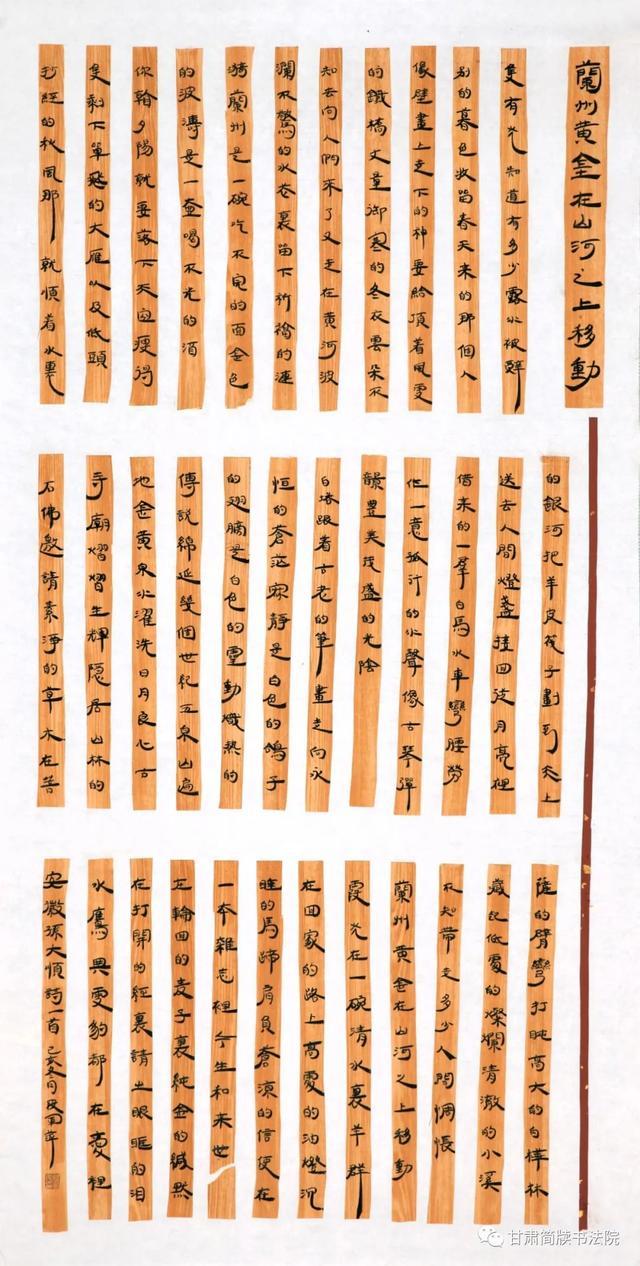 蘭州黄金在山河之上移動
隻有光知道有多少露水被辭
别的暮色收留春天来的那個人
像壁畫上走下的神要給頂着風雪
的鐵橋丈量御寒的冬衣雲朵不
知去向人們来了又走在黄河波
瀾不驚的水卷裏留下祈禱的漣
漪蘭州是一碗吃不完的面金色
的波濤是一壺喝不光的酒
你翰夕陽就要落下天空瘦得
隻剩下單飛的大雁以及低頭
打經的秋風那就順着水裏
的銀河把羊皮筏子劃到天上
送去人間燈盞接回彎月亮裡
借来的一羣白馬水車彎腰勞
作一意孤行的水聲像古琴彈
韻豐美茂盛的光陰
白塔跟着古老的筆畫走向永
恒的蒼茫寂静是白色的鴿子
的翅膀是白色的靈動熾熱的
傳説綿延幾個世紀五泉山遍
地金黄泉水濯洗日月良心古
寺廟熠熠生輝隐居山林的
石佛邀請素淨的草木在菩
薩的臂彎打盹高大的白樺林
藏起低處的燦爛清澈的小溪
不知帶走多少人間惆悵
蘭州黄金在山河之上移動
霞光在一碗清水裏羊群
在回家的路上高處的油燈沉
睡的馬蹄肩負蒼凉的信使在
一本雜志裡今生和来世
在輪回的麦子裏純金的緘默
在打開的經裏請出眼眶的泪
水鷹與雪豹都在裡
安徽孫大順詩一首 己亥冬月
甘肃简牍书法院